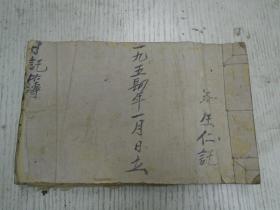 一九五四年一月日立
日記簿
生仁記